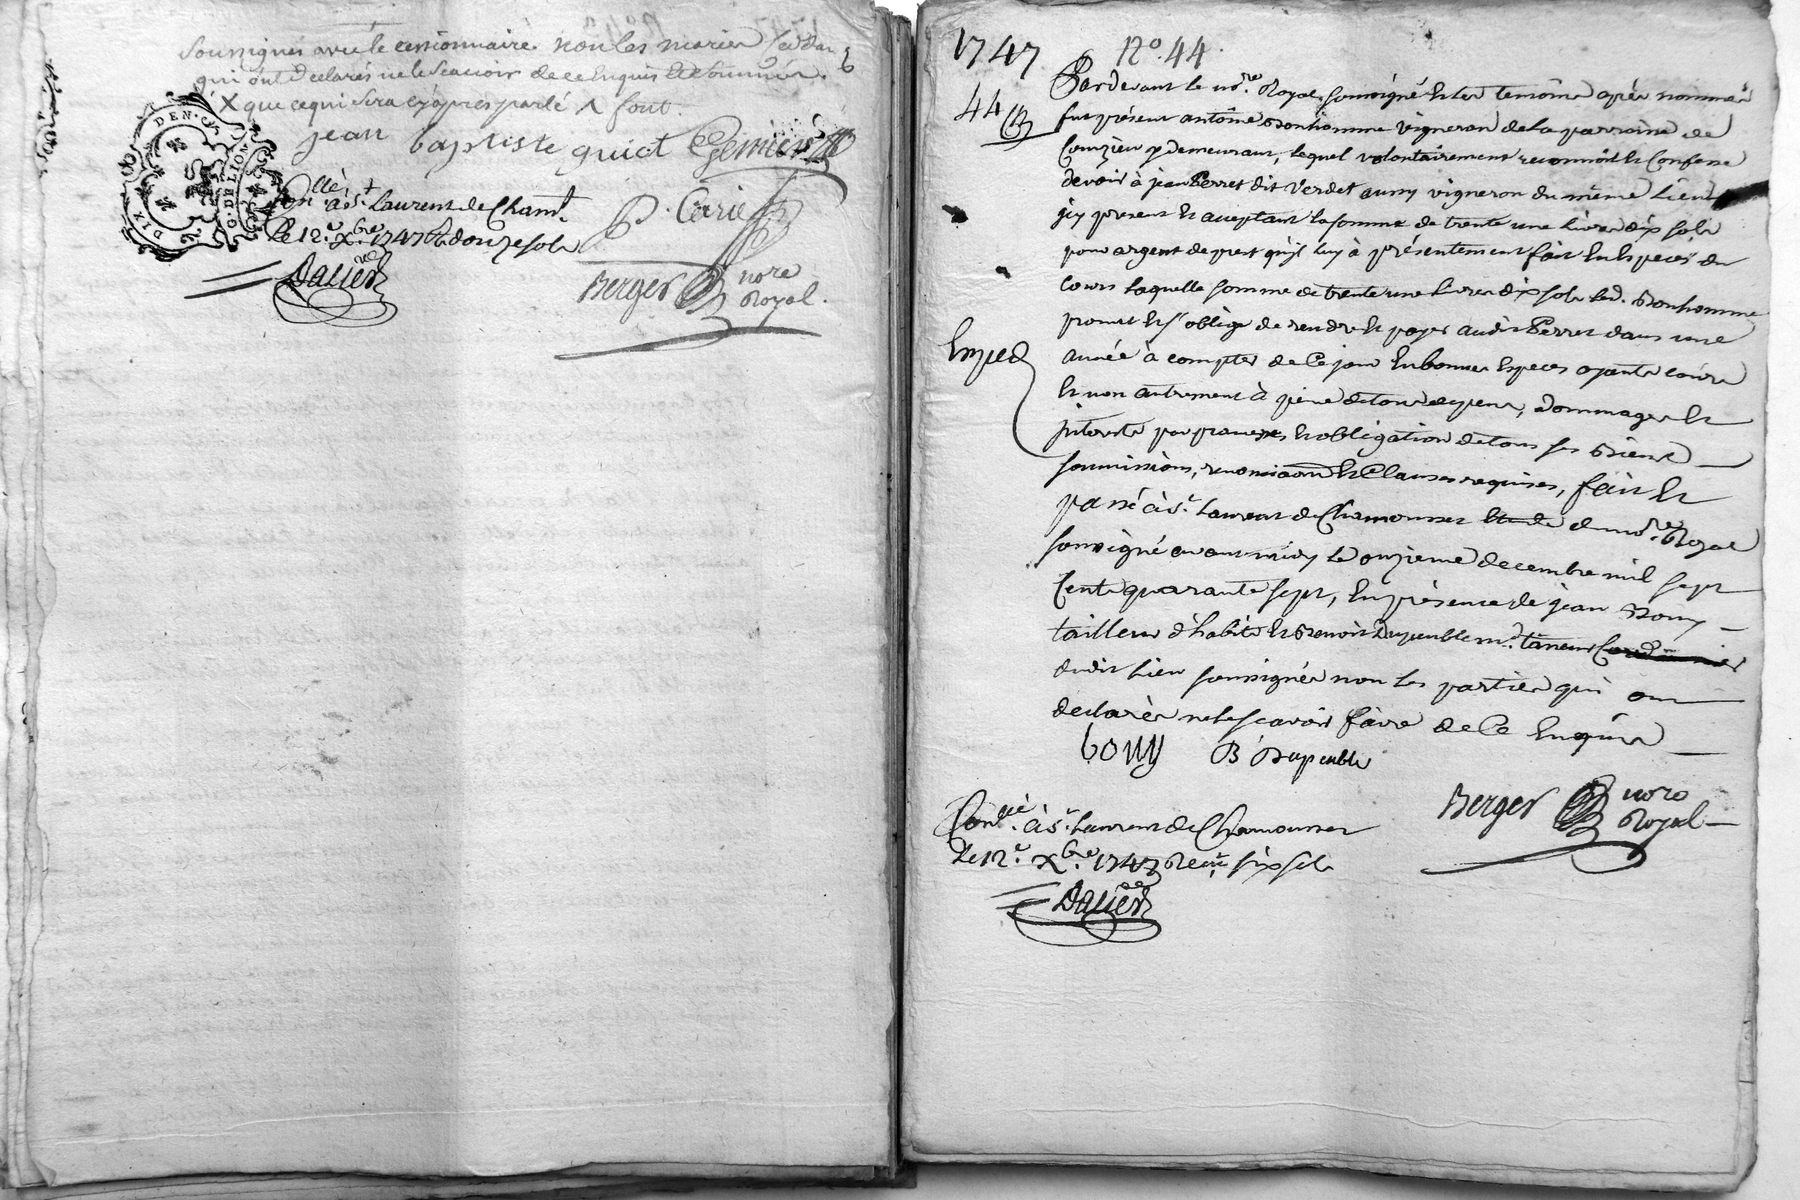 soussignés avec le cessionnaire non les mariés
qui ont déclarés ne le scavoir de ce enquis et sommés.
X que cequi sera cyapres parlé
jean baptiste quiet Gemier
DIX DEN. G. DE LION
Conllé à st. Laurent de Chamt.
Le 12e. Xbre. 1747 R douze sols
P. Cerie
Dacier
Berger nore
Royal.
1747 No. 44
44
Pardevant le nore. Royal soussigné et les temoins après nommés
fut présent antoine Bonhomme vigneron de la parroisse de
Courzieu y demeurant, lequel volontairement reconnoit et Confesse
devoir à jean Perret dit Verdet aussy vigneron du même Lieu
jcy présent et acceptant la somme de trente une Livres dix sols
pour argent de prest qu'il luy à présentement fait En Especes du
Cours laquelle somme de trente une Livres dix sols led. Bonhomme
promet et s'oblige de rendre et payer audit Perret dans une
année à compter de Ce jour En bonnes Especes ayants cours
Et non autrement à peine de tous depens, dommages Et
jnterests par promesses Et obligation de tous ses Biens
soumissions, renonciaōns Et Clauses requises, fait Et
Exped
passé à st. Laurent de Chamousset Etude du nore. Royal
soussigné avant midy Le onzieme decembre mil sept
Cents quarante sept, En présence de jean Bouy
tailleur d'habits Et Benoit Dupeuble md. tanneur Cordonnier
dudit Lieu soussignés non Les parties qui ont
declarés ne le scavoir faire de Ce Enquis
bouy B Dupeuble
Berger nore
Royal
Conllé. à st. Laurent de Chamousset
Le 12e. Xbre. 1747 Reçu six sols
Dacier